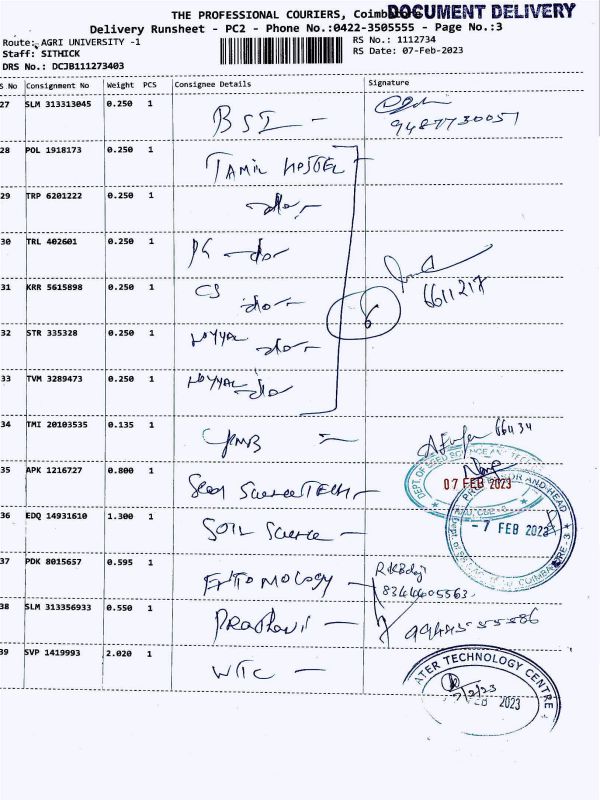 THE PROFESSIONAL COURIERS, Coimbatore
DOCUMENT DELIVERY
Delivery Runsheet - PC2 - Phone No.:0422-3505555 - Page No.:3
Route: AGRI UNIVERSITY -1
RS No.: 1112734
Staff: SITHICK
RS Date: 07-Feb-2023
DRS No.: DCJB111273403
S No Consignment No Weight PCS Consignee Details Signature
27 SLM 313313045 0.250 1 BSI -
9487730057
28 POL 1918173 0.250 1 TAMIL HOSTEL
29 TRP 6201222 0.250 1 -do-
30 TRL 402601 0.250 1 PG -do-
31 KRR 5615898 0.250 1 CS -do-
6611217
6
32 STR 335328 0.250 1 NOYYAL -do-
33 TVM 3289473 0.250 1 NOYYAL -do-
34 TMI 20103535 0.135 1
661134
35 APK 1216727 0.800 1 Seed Science TECH -
DEPT. OF SEED SCIENCE AND TECH
07 FEB 2023
36 EDQ 14931610 1.300 1 SOIL Science -
PROFESSOR AND HEAD
- 7 FEB 2023
COIMBATORE - 3
37 PDK 8015657 0.595 1 ENTOMOLOGY -
8344605563
38 SLM 313356933 0.550 1
39 SVP 1419993 2.020 1 WTC -
WATER TECHNOLOGY CENTRE
FEB 2023